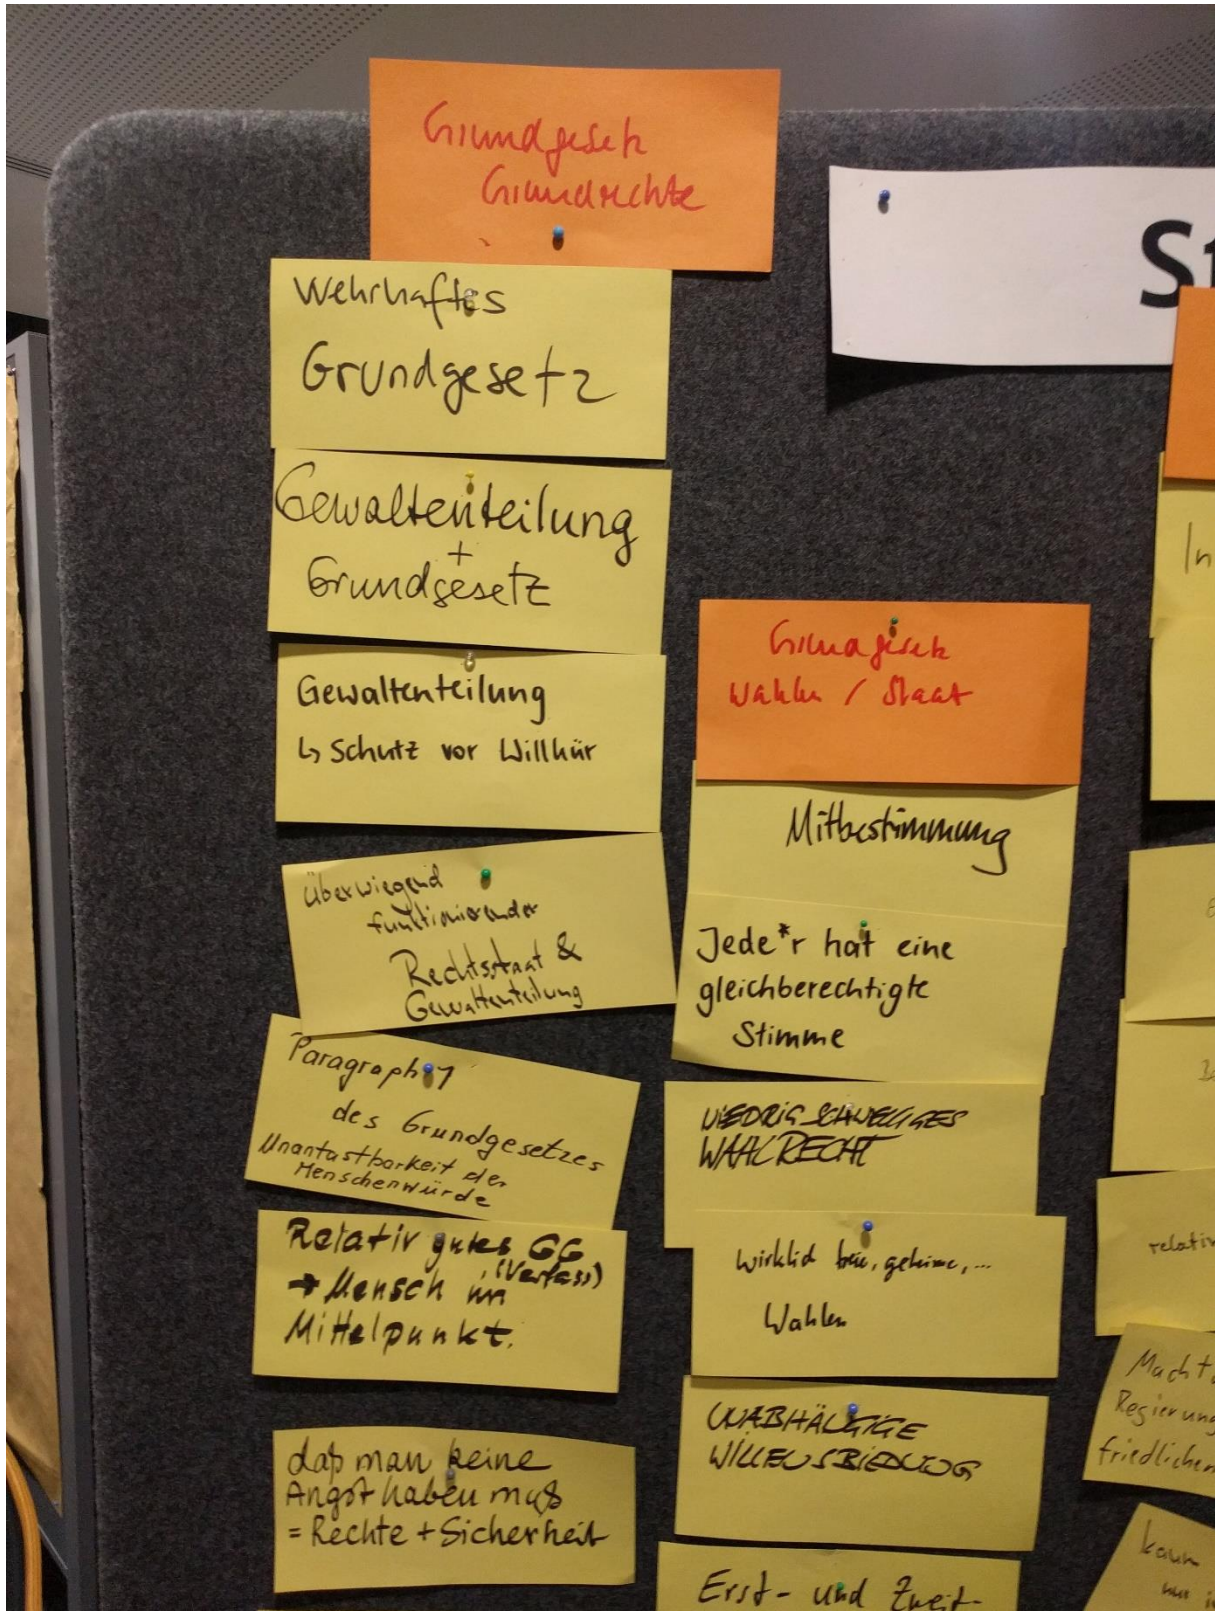 Grundgesetz
Grundrechte
Wehrhaftes
Grundgesetz
Gewaltenteilung
+
Grundgesetz
Gewaltenteilung
↳ Schutz vor Willkür
Überwiegend
funktionierender
Rechtsstaat &
Gewaltenteilung
Paragraph 1
des Grundgesetzes
Unantastbarkeit der
Menschenwürde
Relativ gutes GG
(Verfass)
→ Mensch im
Mittelpunkt.
daß man keine
Angst haben muß
= Rechte + Sicherheit
St
Grundgesetz
Wahlen / Staat
Mitbestimmung
Jede*r hat eine
gleichberechtigte
Stimme
NIEDRIGSCHWELLIGES
WAHLRECHT
Wirklich freie, geheime, ...
Wahlen
UNABHÄNGIGE
WILLENSBILDUNG
Erst- und Zweit-
In
relativ
Macht
Regierung
friedlichen
kaum
nur